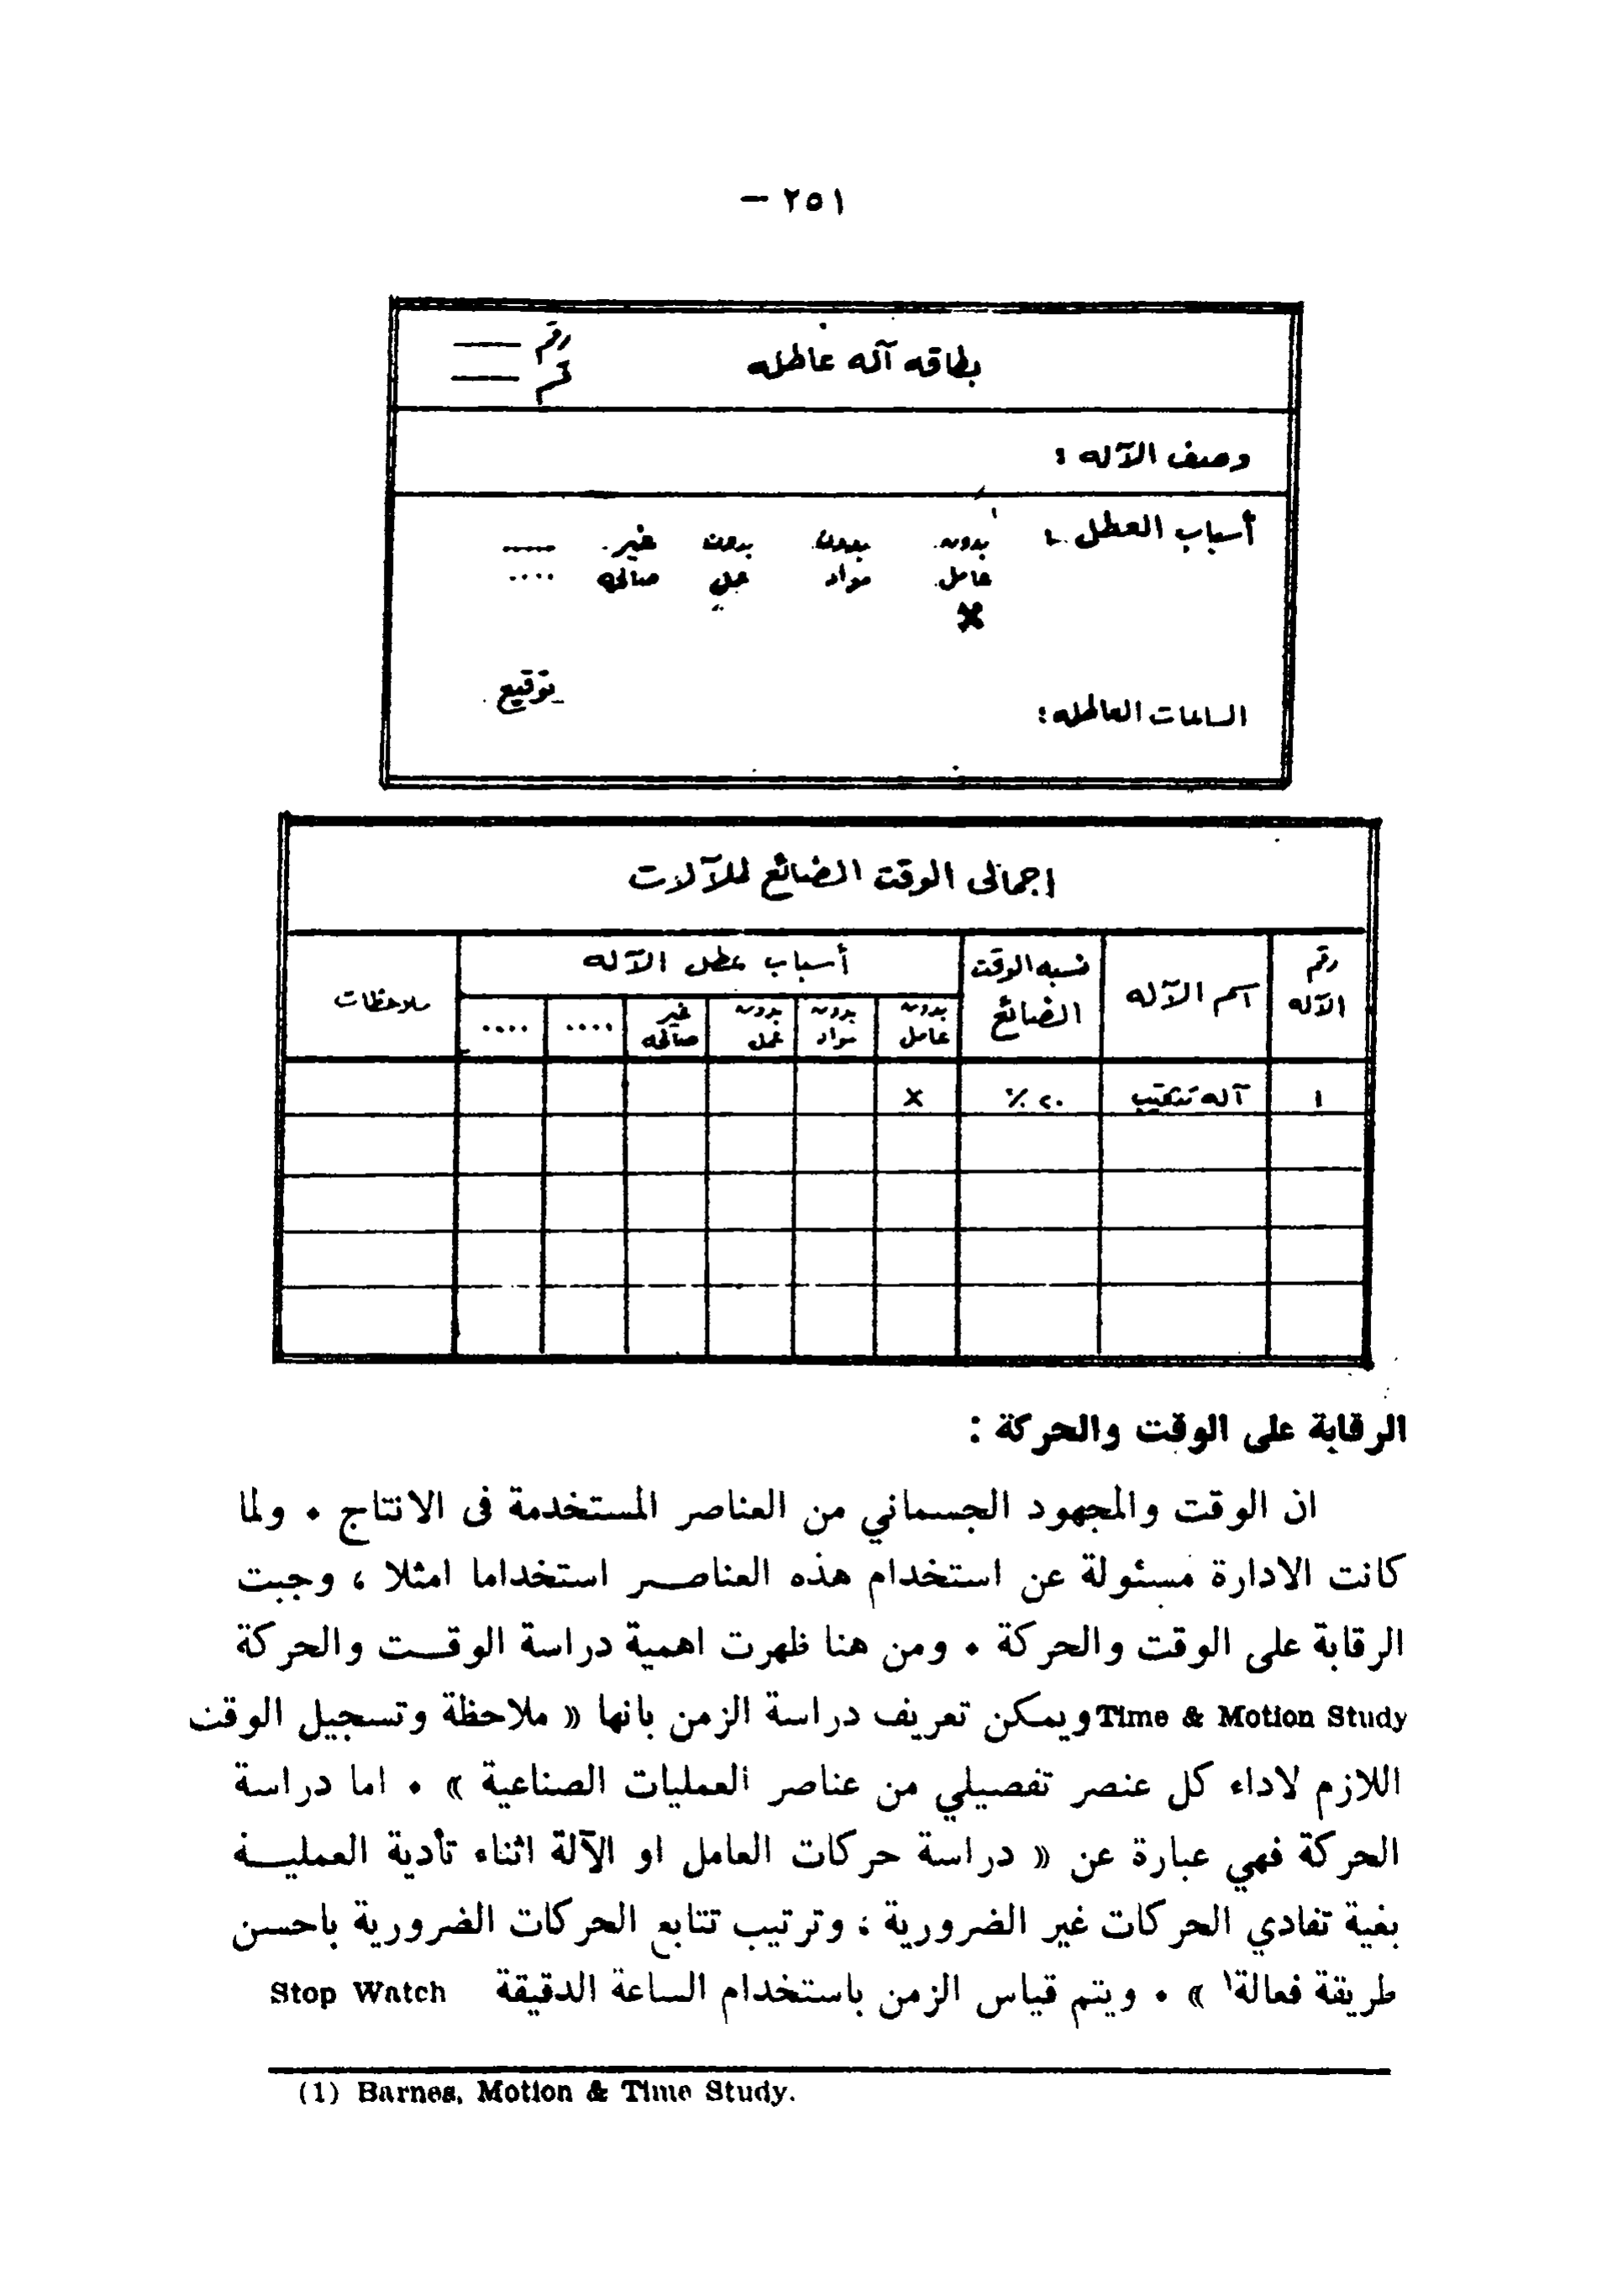 ٢٥١ —
بطاقه آله عاطله
رقم ——
قسم ——
وصف الآله :
أسباب العطل :
بدون بدون بدون غير .....
عامل مواد عمل صالحه ....
×
توقيع
الساعات العاطله :
اجمالى الوقت الضائع للآلات
رقم الآله
اسم الآله
نسبه الوقت الضائع
أسباب عطل الآله
ملاحظات
بدون بدون بدون غير .... ....
عامل مواد عمل صالحه
١ آله تنكتيب ٢٠ ٪ ×
الرقابة على الوقت والحركة :
ان الوقت والمجهود الجسماني من العناصر المستخدمة فى الانتاج . ولما
كانت الادارة مسئولة عن استخدام هذه العناصر استخداما امثلا ، وجبت
الرقابة على الوقت والحركة . ومن هنا ظهرت اهمية دراسة الوقت والحركة
Time & Motion Study ويمكن تعريف دراسة الزمن بانها « ملاحظة وتسجيل الوقت
اللازم لاداء كل عنصر تفصيلي من عناصر العمليات الصناعية » . اما دراسة
الحركة فهي عبارة عن « دراسة حركات العامل او الآلة اثناء تأدية العملية
بغية تفادي الحركات غير الضرورية ، وترتيب تتابع الحركات الضرورية باحسن
طريقة فعالة١ » . ويتم قياس الزمن باستخدام الساعة الدقيقة Stop Watch
(1) Barnes, Motion & Time Study.